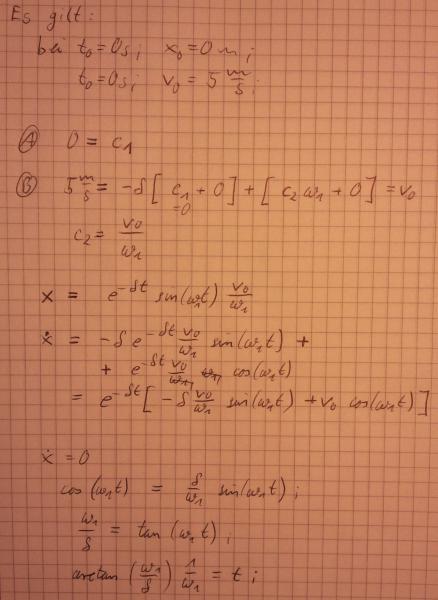 Es gilt:
bei t₀ = 0s; x₀ = 0 m;
t₀ = 0s; v₀ = 5 m/s;
Ⓐ 0 = c₁
Ⓑ 5 m/s = -δ[ c₁ + 0 ] + [ c₂ ω₁ + 0 ] = v₀
=0
c₂ = v₀/ω₁
x = e^(-δt) sin(ω₁t) v₀/ω₁
ẋ = -δ e^(-δt) v₀/ω₁ sin(ω₁t) +
+ e^(-δt) v₀/ω₁ ω₁ cos(ω₁t)
= e^(-δt) [ -δ v₀/ω₁ sin(ω₁t) + v₀ cos(ω₁t) ]
ẋ = 0
cos(ω₁t) = δ/ω₁ sin(ω₁t);
ω₁/δ = tan(ω₁t);
arctan(ω₁/δ) 1/ω₁ = t;